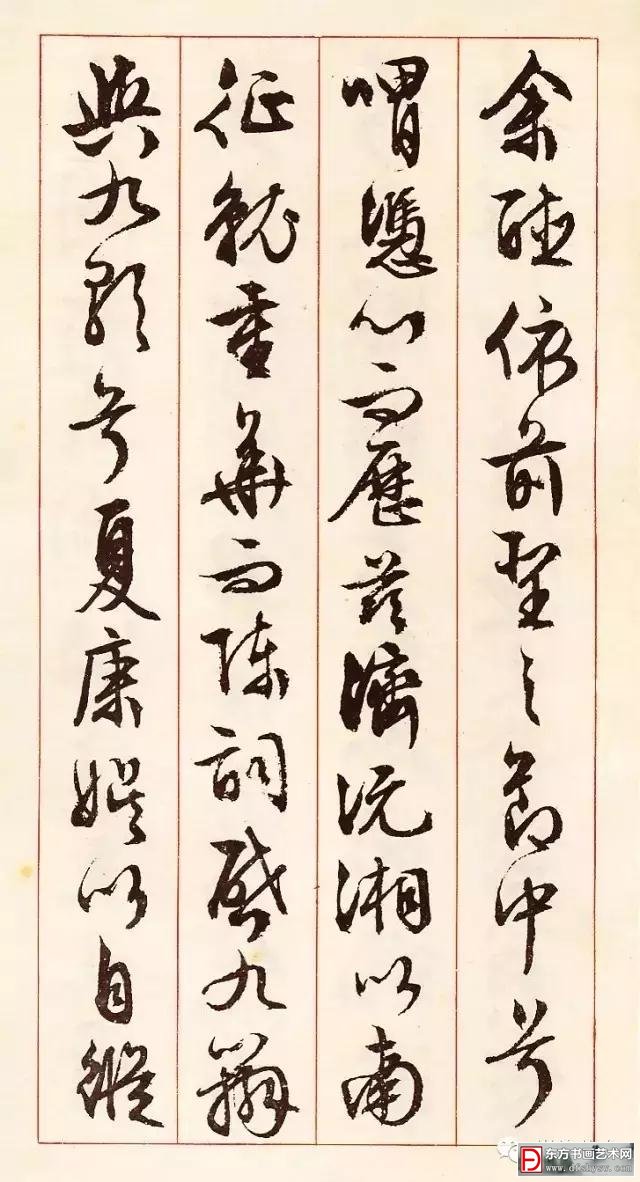 余聽依前聖之節中兮
喟憑心而歷茲濟沅湘以南
征就重華而陳詞啟九辯
與九歌兮夏康娛以自縱
东方书画艺术网